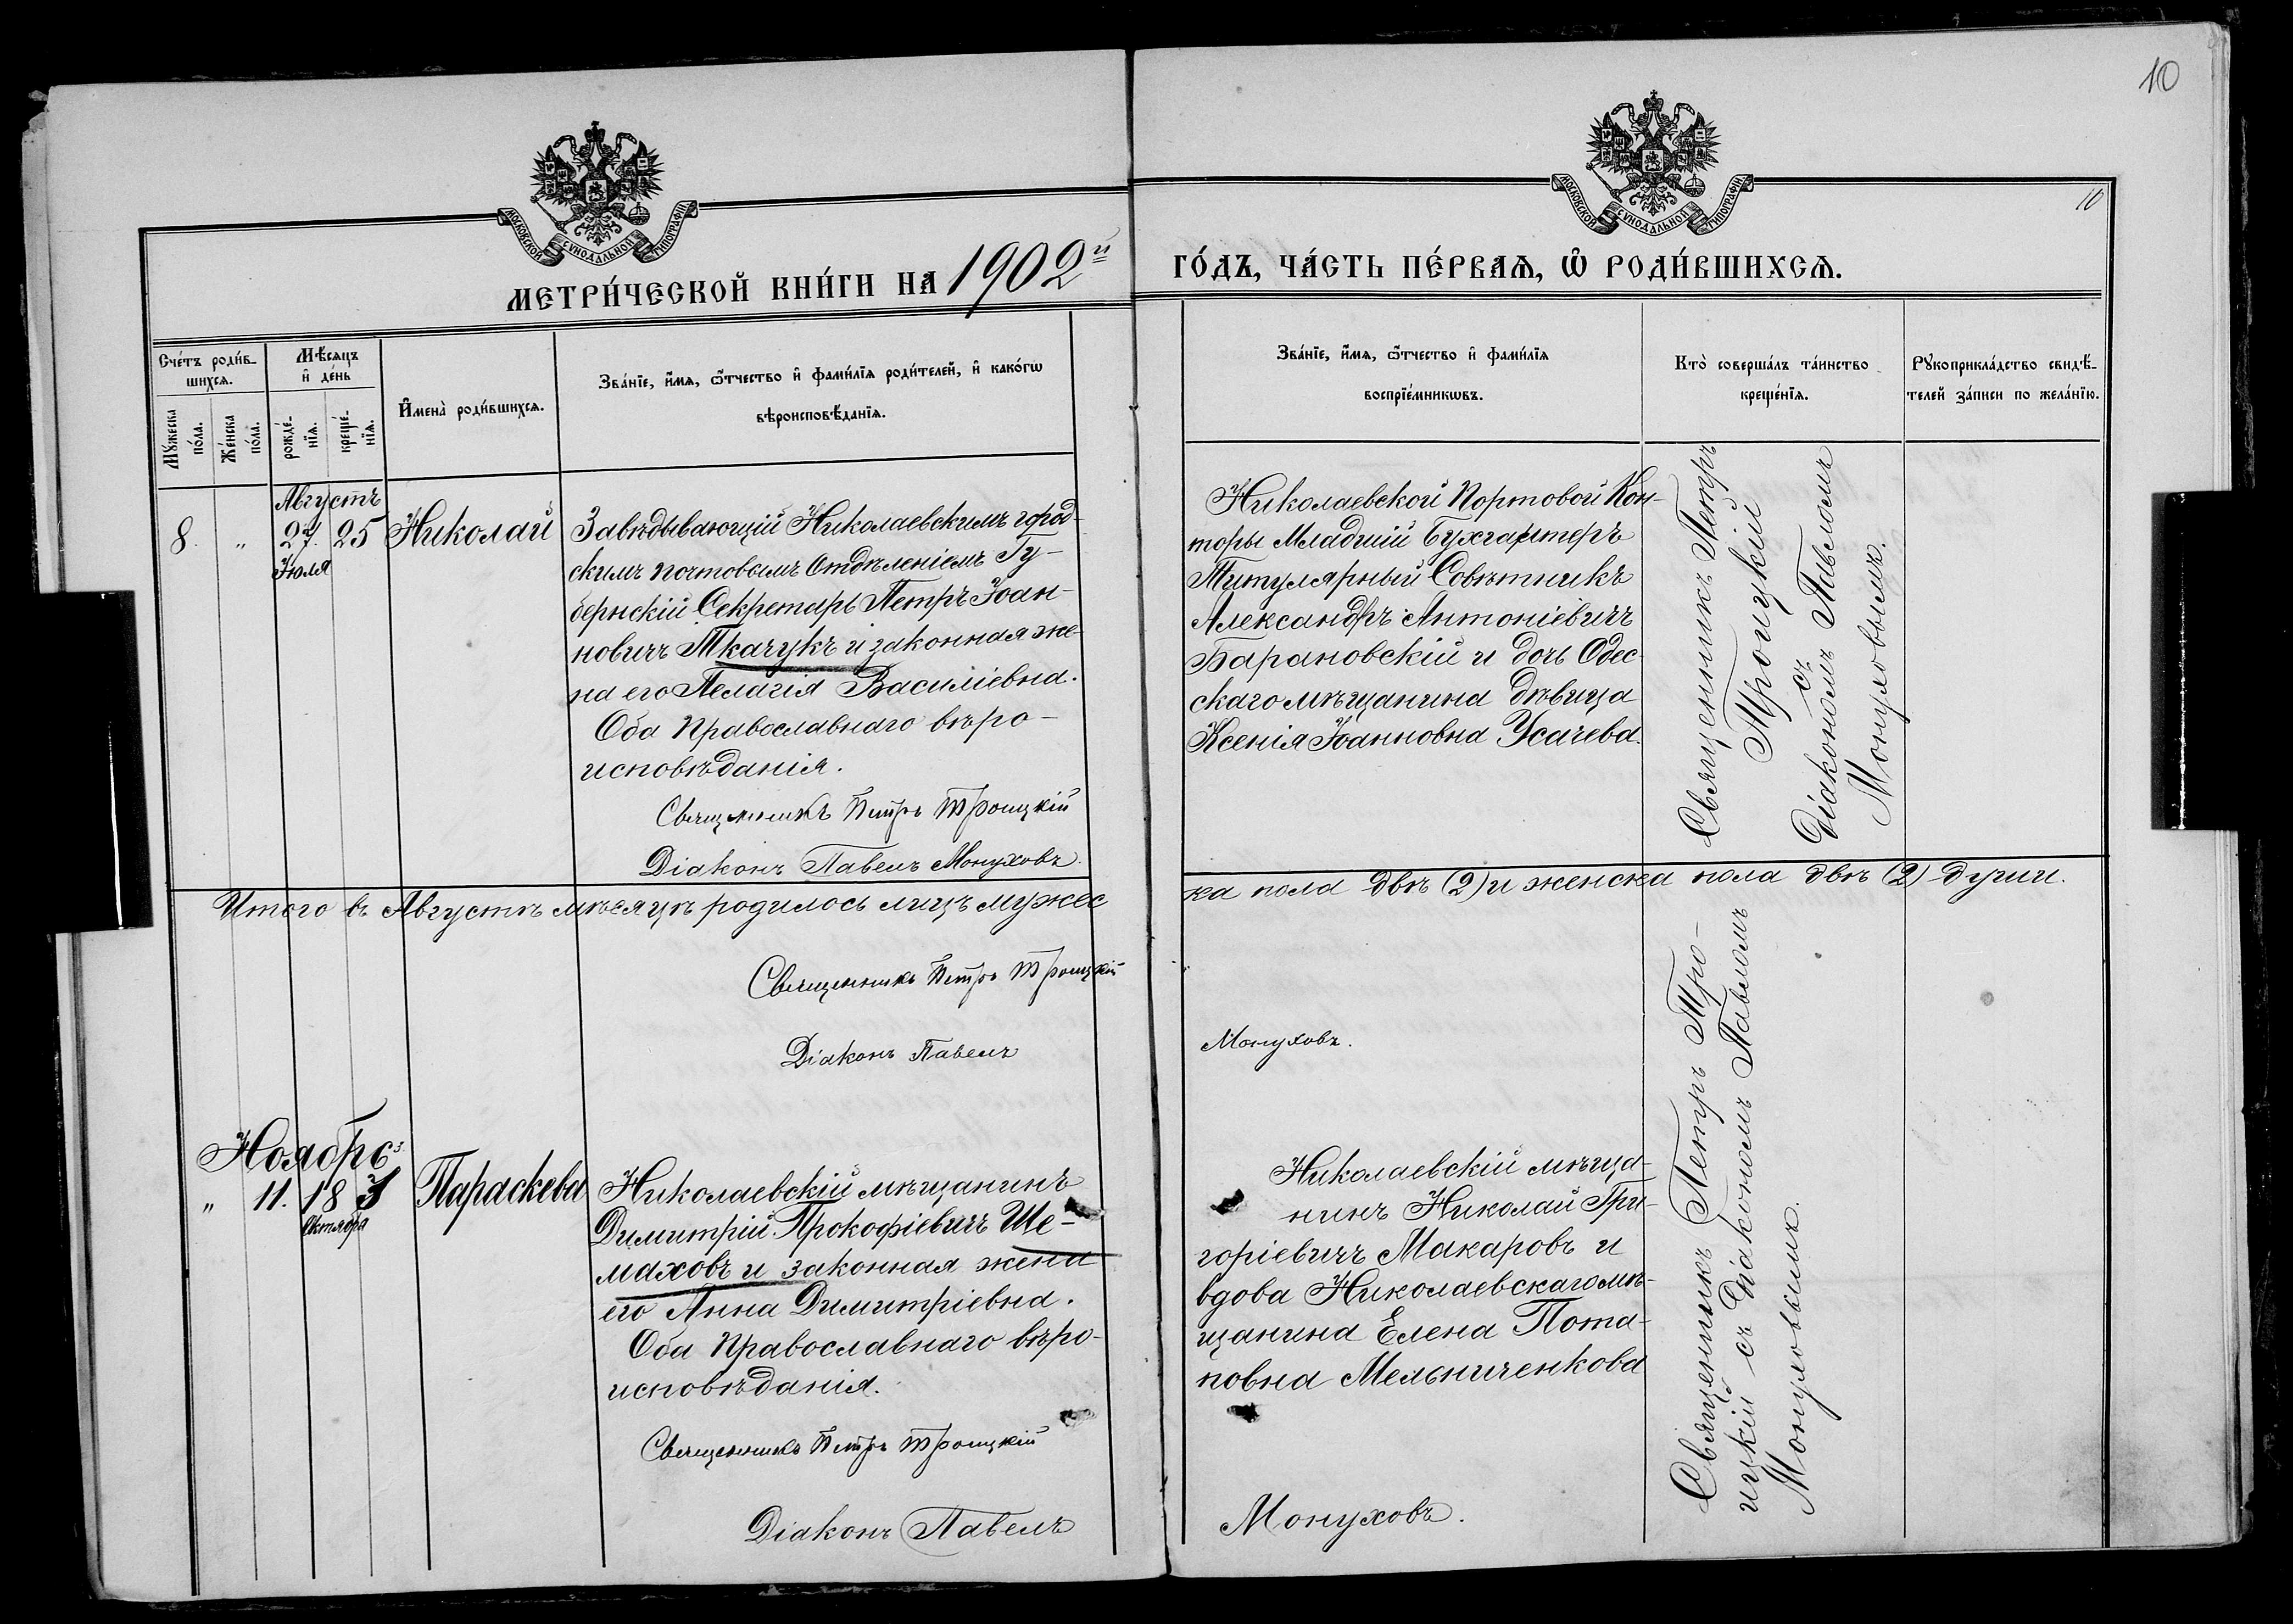 10
10
МОСКОВСКОЙ СѴНОДАЛЬНОЙ ТИПОГРАФІИ
МОСКОВСКОЙ СѴНОДАЛЬНОЙ ТИПОГРАФІИ
МЕТРИ́ЧЕСКОЙ КНИ́ГИ НА 1902й
ГО́ДЪ, ЧА́СТЬ ПЕ́РВАЯ, Ѡ РОДИ́ВШИХСЯ.
Сче́тъ роди́в-
шихся.
Мꙋ́жеска
по́ла.
Же́нска
по́ла.
Мѣ́сяцъ
и҆ де́нь
рожде́-
нїя.
креще́-
нїя.
И҆мена̀ роди́вшихся.
Зва́нїе, и҆́мя, ѻ҆́тчество и҆ фами́лїя роди́телей, и҆ како́гѡ
вѣроисповѣ́данїя.
Зва́нїе, и҆́мя, ѻ҆́тчество и҆ фами́лїя
воспрїе́мникѡвъ.
Кто̀ соверша́лъ та́инство
креще́нїя.
Рꙋкоприкла́дство свидѣ́-
телей за́писи по жела́нїю.
Августъ
8. „ 27. 25
Іюля
Николай
Завѣдывающій Николаевскимъ город-
скимъ почтовымъ Отдѣленіемъ Гу-
бернскій Секретарь Петръ Іоан-
новичъ Ткачукъ и законная же-
на его Пелагія Василіевна.
Оба Православнаго вѣро-
исповѣданія.
Священникъ Петръ Троицкій
Діаконъ Павелъ Монуховъ.
Николаевской Портовой Кон-
торы Младшій Бухгалтеръ
Титулярный Совѣтникъ
Александръ Антоніевичъ
Барановскій и дочь Одес-
скаго мѣщанина дѣвица
Ксенія Іоанновна Усачева.
Священникъ Петръ
Троицкій
съ
Діакономъ Павломъ
Монуховымъ.
Итого въ Августѣ мѣсяцѣ родилось лицъ мужес
ка пола двѣ (2) и женска пола двѣ (2) души.
Священникъ Петръ Троицкій
Діаконъ Павелъ
Монуховъ.
Ноябрь
„ 11. 18 3
Октября
Параскева
Николаевскій мѣщанинъ
Димитрій Прокофіевичъ Ше-
маховъ и законная жена
его Анна Димитріевна.
Оба Православнаго вѣро-
исповѣданія.
Священникъ Петръ Троицкій
Діаконъ Павелъ
Николаевскій мѣща-
нинъ Николай Гри-
горіевичъ Макаровъ и
вдова Николаевскаго мѣ-
щанина Елена Пота-
повна Мельниченкова
Монуховъ.
Священникъ Петръ Тро-
ицкій съ Діакономъ Павломъ
Монуховымъ.